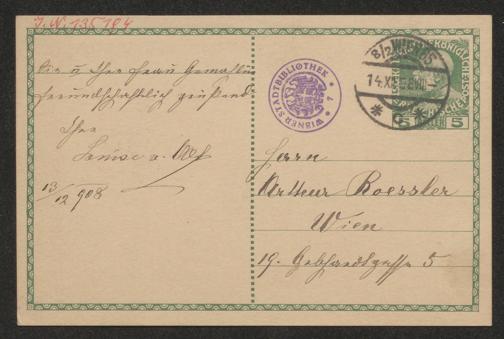 I.N. 135184
Sie u Ihre Frau Gemahlin
freundschaftlich grüßend
Ihre
Louise v.
13/12 908
WIENER STADTBIBLIOTHEK
8/2 WIEN
14.XII
5
Herrn
Arthur Roessler
Wien
19. Gebhardtgasse 5